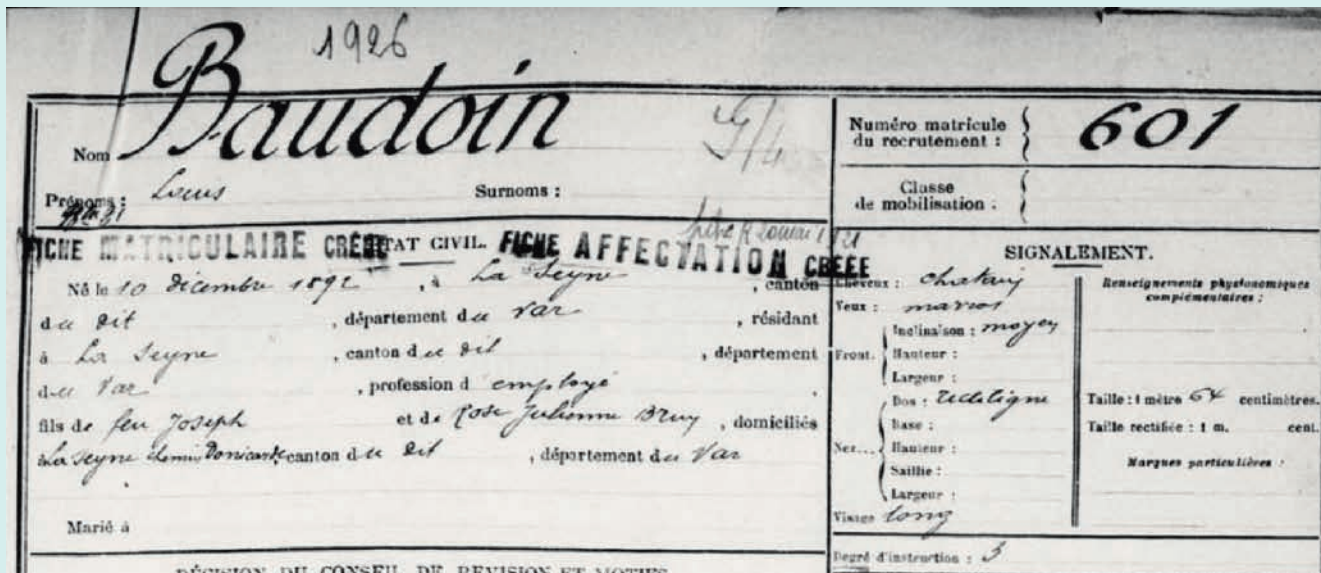 1926
Nom Baudoin
Prénoms : Louis Surnoms :
FICHE MATRICULAIRE CRÉÉE ÉTAT CIVIL. FICHE AFFECTATION CRÉÉE
Né le 10 décembre 1892, à La Seyne, canton
du dit, département du Var, résidant
à La Seyne, canton du dit, département
du Var, profession d'employé,
fils de feu Joseph et de Rose Julienne Bruy, domiciliés
à La Seyne chemin canton du dit, département du Var
Marié à
DÉCISION DU CONSEIL DE REVISION ET MOTIFS
Numéro matricule du recrutement : 601
Classe de mobilisation :
SIGNALEMENT.
Cheveux : chatain
Yeux : marron
Front. Inclinaison : moyen
Hauteur :
Largeur :
Nez... Dos : rectiligne
Base :
Hauteur :
Saillie :
Largeur :
Visage long
Renseignements physionomiques complémentaires :
Taille : 1 mètre 64 centimètres.
Taille rectifiée : 1 m. cent.
Marques particulières :
Degré d'instruction : 3